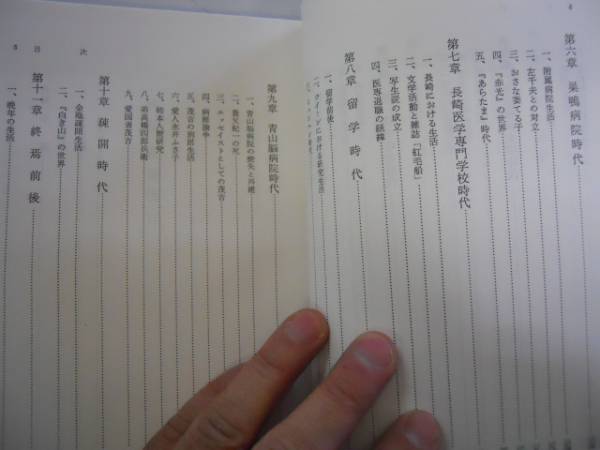 4
第六章 巣鴨病院時代
一、附属病院生活
二、左千夫との対立
三、おさな妻てる子
四、『赤光』の世界
五、『あらたま』時代
第七章 長崎医学専門学校時代
一、長崎における生活
二、文学活動と雑誌『紅毛船』
三、写生説の成立
四、医専退職の経緯
第八章 留学時代
一、留学前後
二、ウイーンにおける研究生活
第九章 青山脳病院時代
一、青山脳病院の焼失と再建
二、養父紀一の死
三、エッセイストとしての茂吉
四、病雁論争
五、茂吉の別居生活
六、愛人永井ふさ子
七、柿本人麿研究
八、弟高橋四郎兵衛
九、愛国者茂吉
第十章 疎開時代
一、金瓶疎開生活
二、『白き山』の世界
第十一章 終焉前後
一、晩年の生活
目次
5